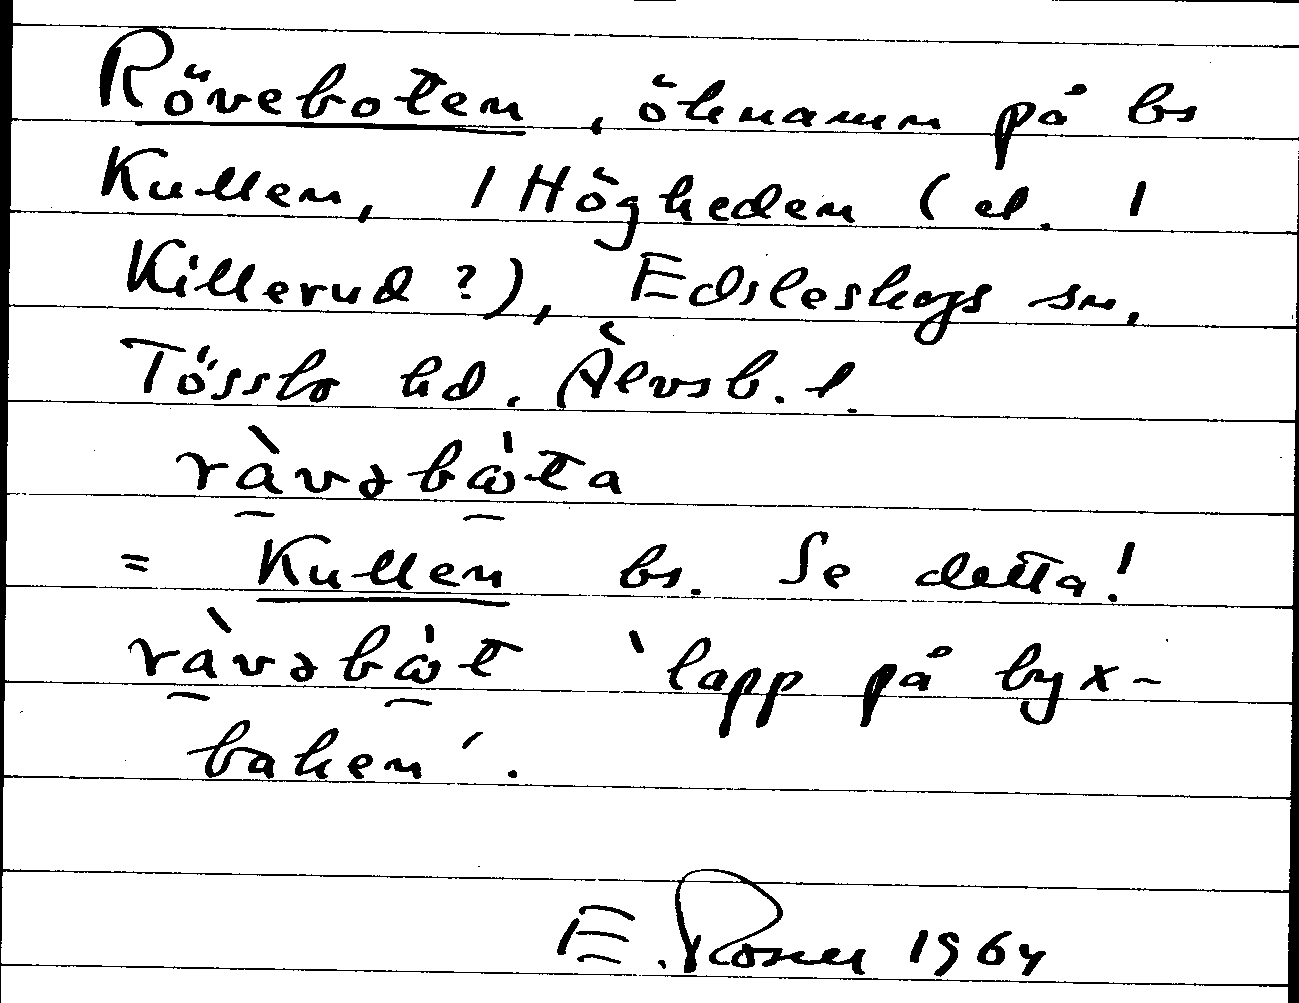 Röveboten, öknamn på bs
Kullen, i Högheden (el. i
Killerud?), Edsleskogs sn,
Tössbo hd. Älvsb. l.
ràvəbωta
= Kullen bs. Se detta!
ràvəbωt 'lapp på byx-
baken'.
E. Rosell 1964